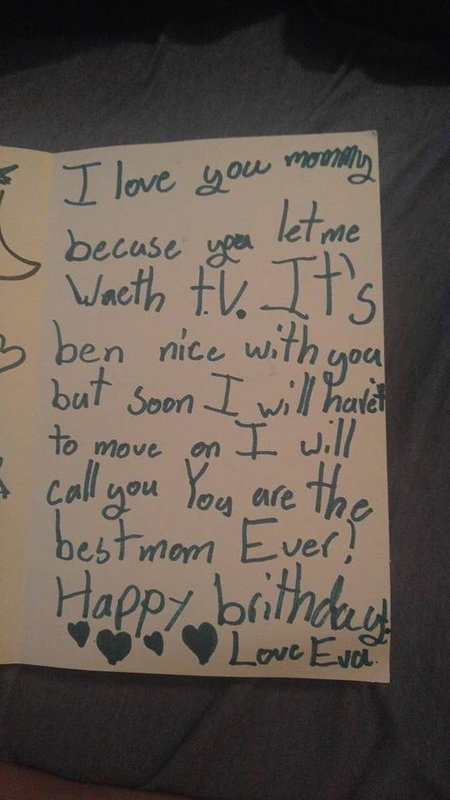 I love you mommy
becuse you let me
Waeth t.V. It's
ben nice with you
but soon I will have
to move on I will
call you You are the
best mom Ever!
Happy brithday!
Love Eva.